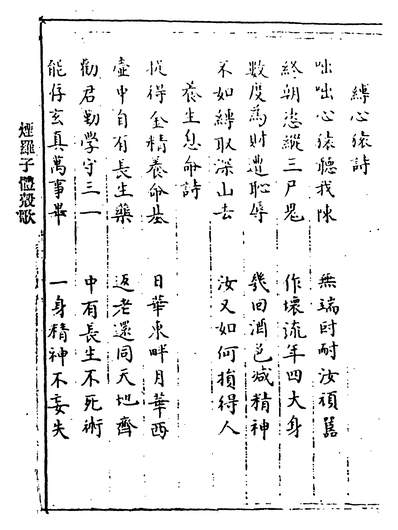 縛心猿詩
咄咄心猿聽我陳　無端叵耐汝頑嚚
終朝恣縱三尸鬼　作壞流年四大身
數度為財遭恥辱　幾回酒色減精神
不如縛取深山去　汝又如何損得人
養生息命詩
得金精養命基　日華東畔月華西
壺中自有長生藥　返老還同天地齊
勸君勤學守三一　中有長生不死術
能存玄真萬事畢　一身精神不妄失
煙羅子體殼歌